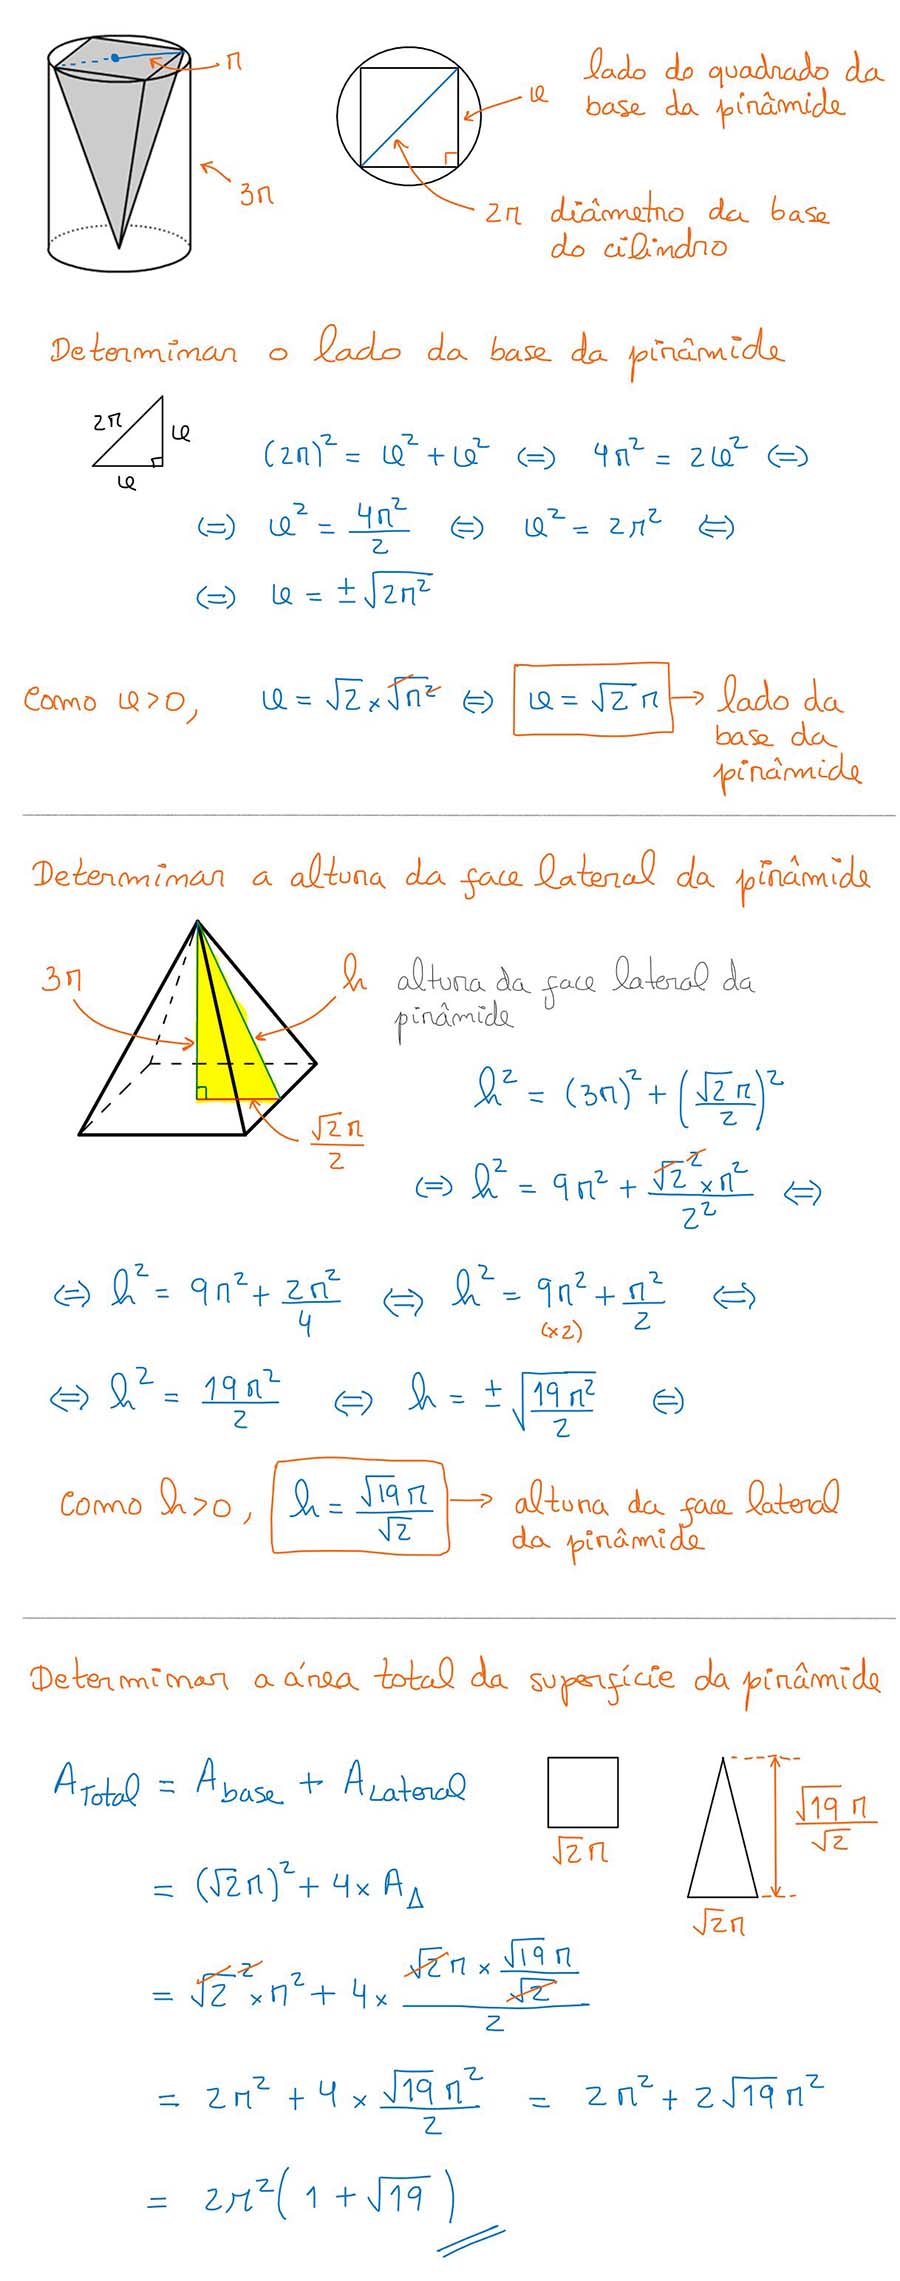 r
3r
ℓ
lado do quadrado da
base da pirâmide
2r diâmetro da base
do cilindro
Determinar o lado da base da pirâmide
2r
ℓ
ℓ
(2r)² = ℓ² + ℓ² ⇔ 4r² = 2ℓ² ⇔
⇔ ℓ² = 4r²/2 ⇔ ℓ² = 2r² ⇔
⇔ ℓ = ±√(2r²)
Como ℓ>0, ℓ = √2 × √r² ⇔ ℓ = √2 r → lado da
base da
pirâmide
Determinar a altura da face lateral da pirâmide
3r
h altura da face lateral da
pirâmide
√2r/2
h² = (3r)² + (√2 r/2)²
⇔ h² = 9r² + √2² × r²/2² ⇔
⇔ h² = 9r² + 2r²/4 ⇔ h² = 9r² + r²/2 ⇔
(×2)
⇔ h² = 19r²/2 ⇔ h = ±√(19r²/2) ⇔
Como h>0, h = √19 r/√2 → altura da face lateral
da pirâmide
Determinar a área total da superfície da pirâmide
A Total = A base + A Lateral
√2 r
√19 r/√2
√2 r
= (√2 r)² + 4 × A△
= √2² × r² + 4 × (√2 r × √19 r/√2)/2
= 2r² + 4 × √19 r²/2 = 2r² + 2√19 r²
= 2r²(1 + √19)